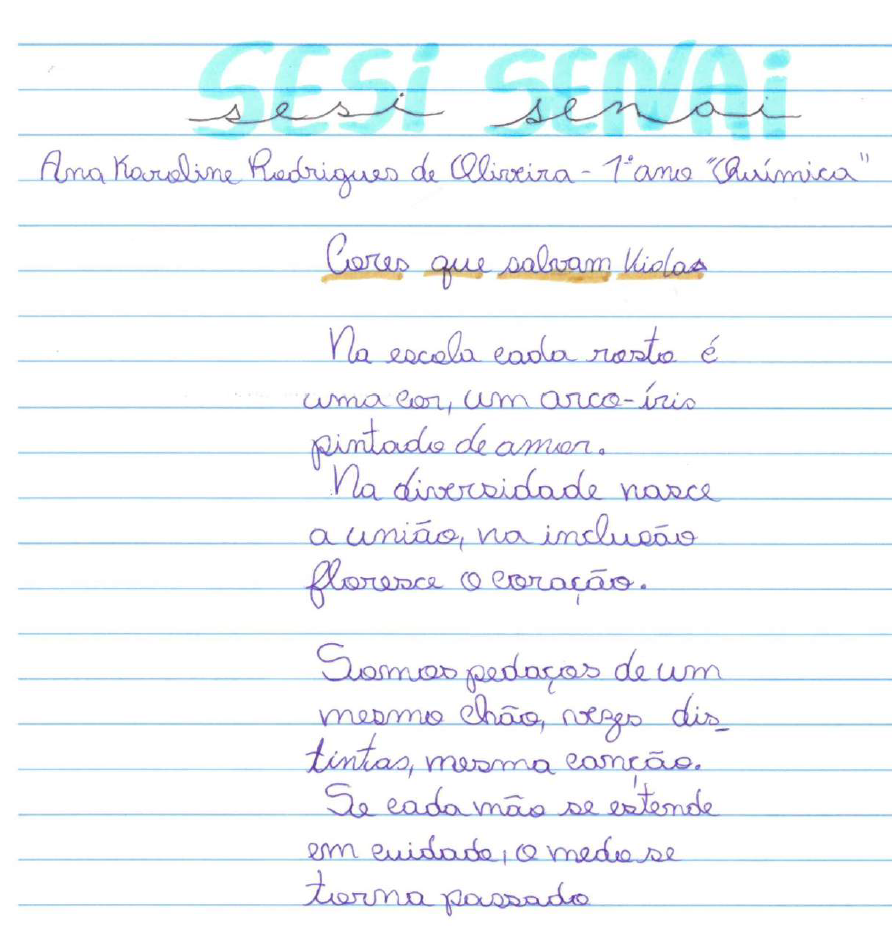 SESI SENAI
sesi senai
Ana Karoline Rodrigues de Oliveira - 1° ano "Química"
Cores que salvam Vidas
Na escola cada rosto é
uma cor, um arco-íris
pintado de amor.
Na diversidade nasce
a união, na inclusão
floresce o coração.
Somos pedaços de um
mesmo chão, vozes dis_
tintas, mesma canção.
Se cada mão se estende
em cuidado, o medo se
torna passado